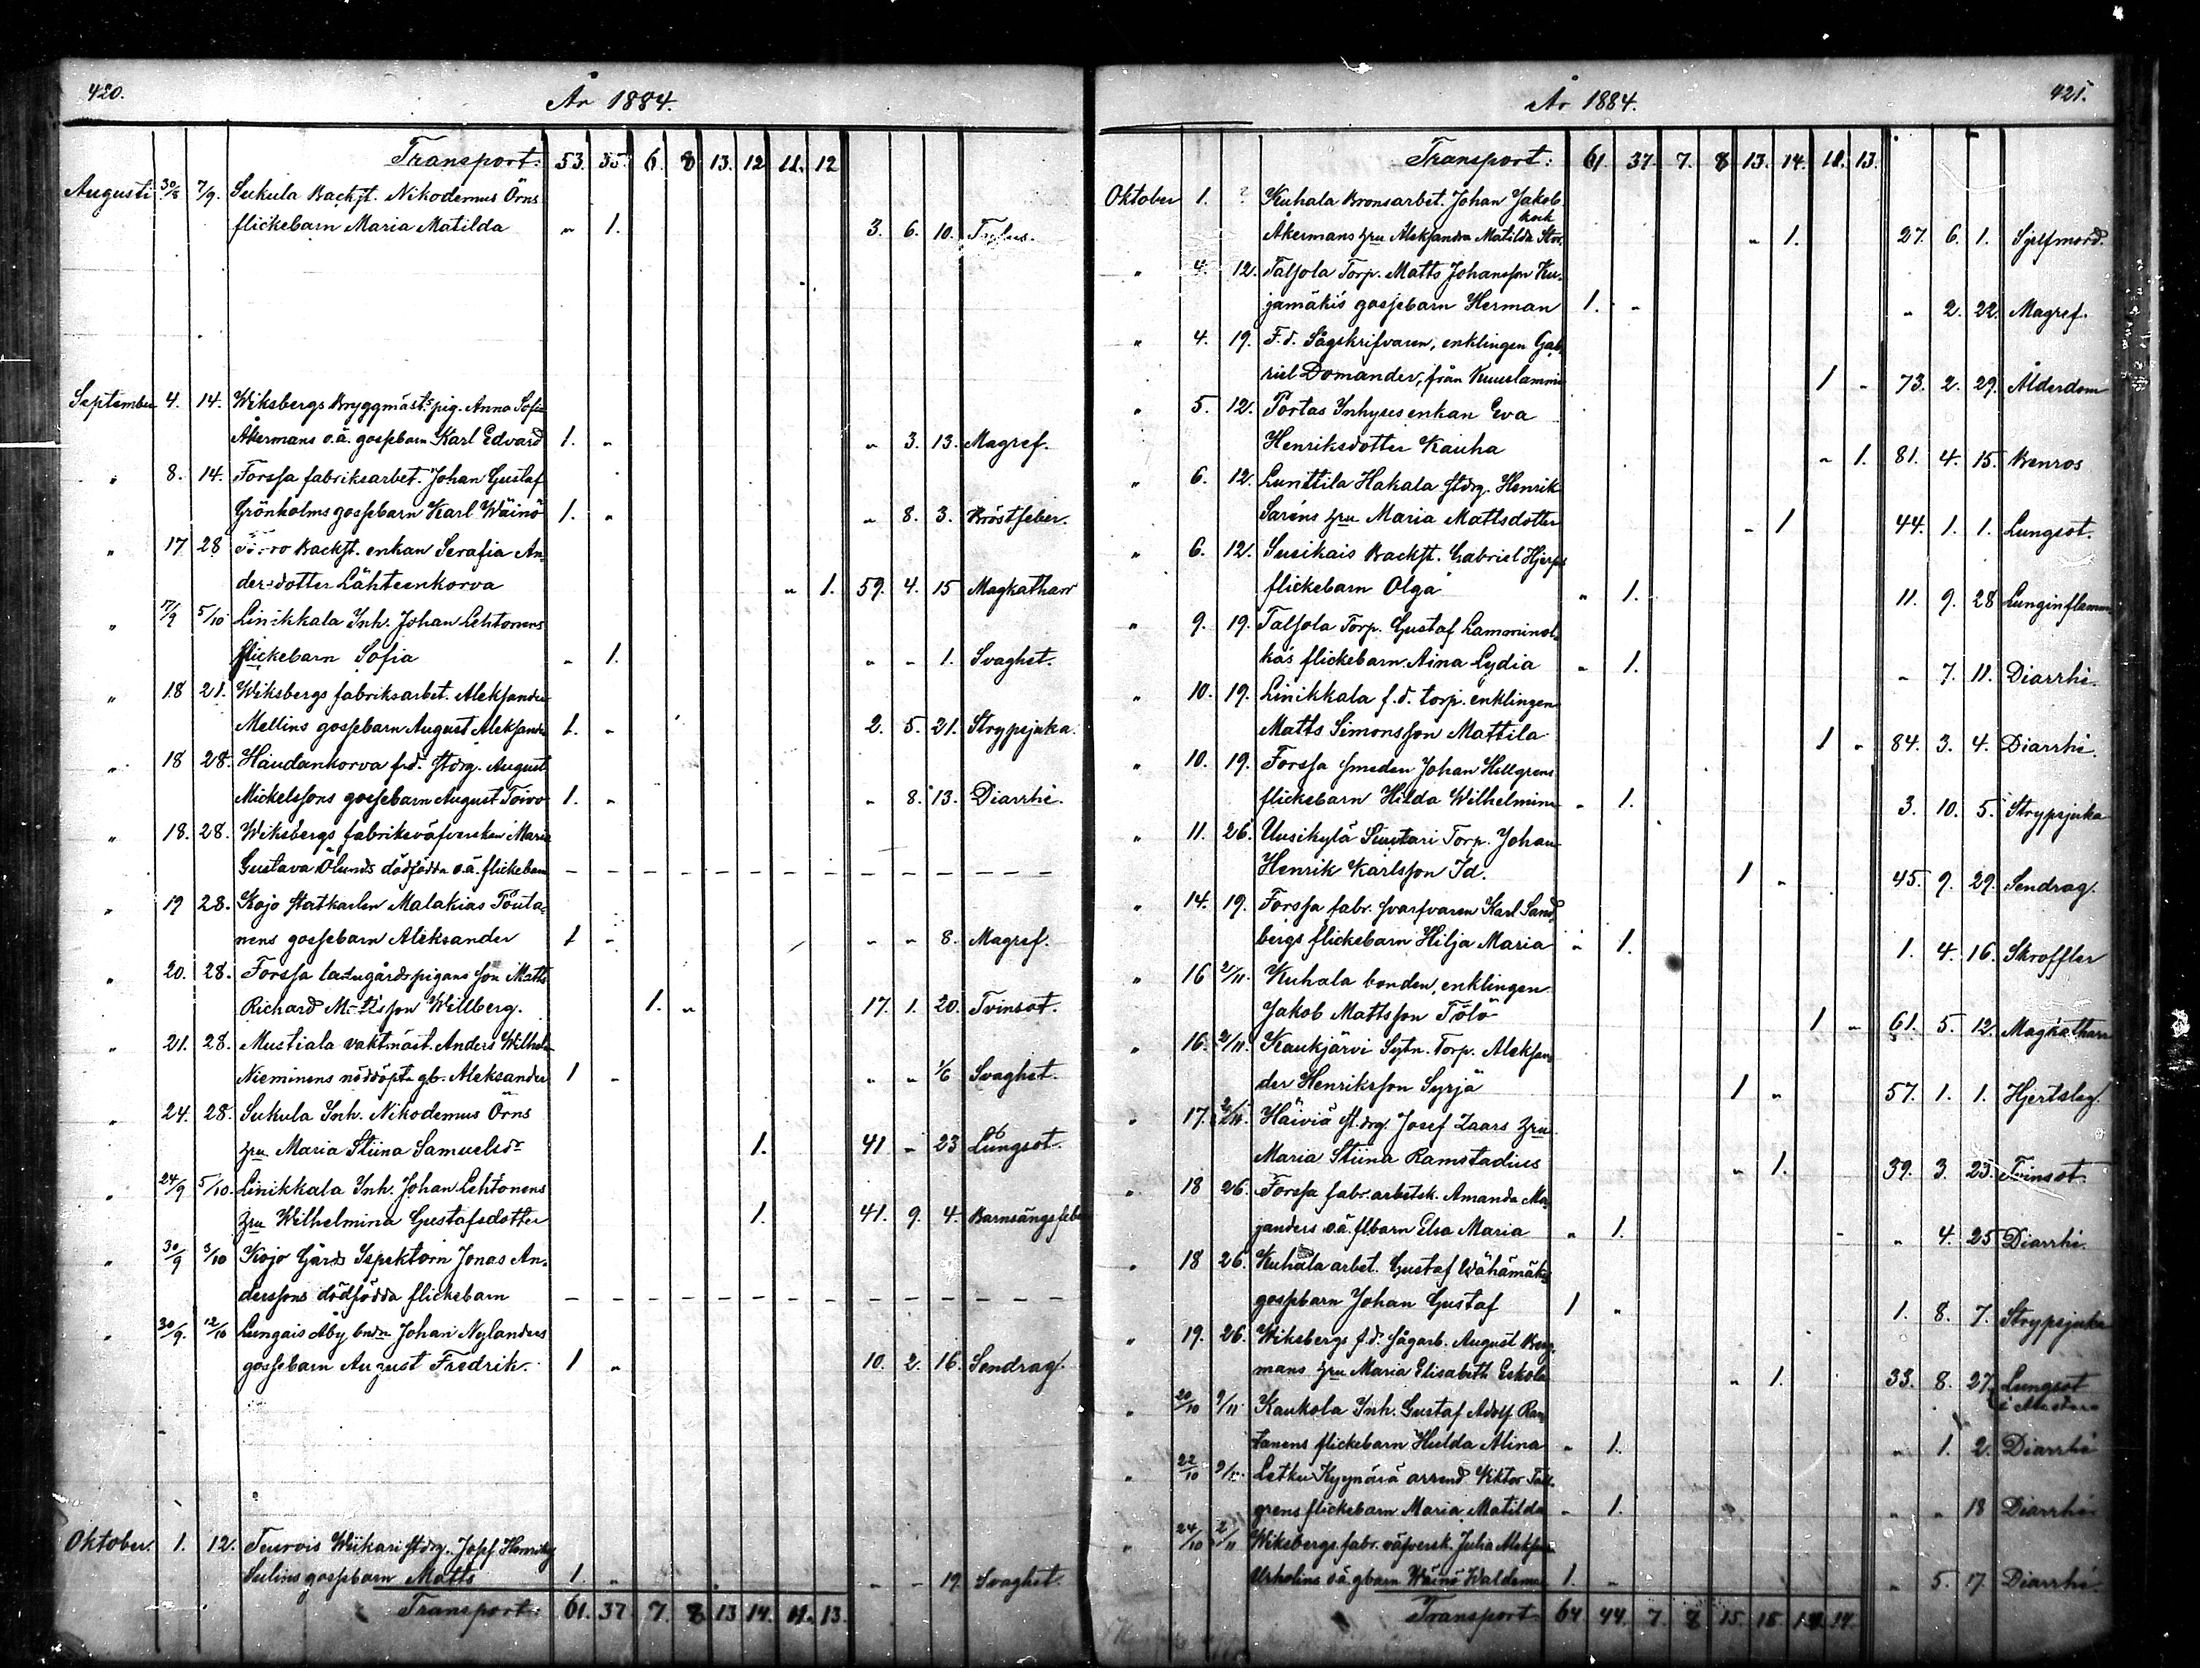 420.
År 1884.
Transport: 53. 35. 6. 8 13. 12 11. 12
Augusti 30/8 7/9. Sukula Backst. Nikodemus Örns
flickebarn Maria Matilda „ 1. 3. 6. 10.
September 4. 14. Wiksbergs Bryggmäst:s pig. Anna Sofia
Åkermans o.ä. gossebarn Karl Edvard 1. „ „ 3. 13. Magref.
„ 8. 14. Forssa fabriksarbet. Johan Gustaf
Grönholms gossebarn Karl Wäinö 1. „ „ 8. 3. Bröstfeber.
„ 17 28 Backst. enkan Serafia An-
dersdotter Lähteenkorva „ 1. 59. 4. 15 Magkatharr
„ 17/9 5/10 Linikkala Inh. Johan Lehtonens
flickebarn Sofia „ 1. „ „ 1. Svaghet.
„ 18 21. Wiksbergs fabriksarbet. Aleksander
Mellins gossebarn August Aleksander 1. „ 2. 5. 21. Strypsjuka.
„ 18 28. Haudankorva f.d. stdrg. August
Mickelssons gossebarn August Toivo 1. „ „ 8. 13. Diarrhé.
„ 18. 28. Wiksbergs fabriksväfverskan Maria
Gustava Ölunds dödfödda o.ä. flickebarn – – – – – – – – – – – – –
„ 19 28. Kojo statkarlen Malakias Pouta-
nens gossebarn Aleksander 1 „ „ „ 8. Magref.
„ 20. 28. Forssa ladugårdspigans son Matts
Richard Mattsson Willberg. 1. „ 17. 1. 20. Tvinsot.
„ 21. 28. Mustiala vaktmäst. Anders Wilhelm
Nieminens nöddöpta gb. Aleksander 1 „ „ „ 1/6 Svaghet.
„ 24. 28. Sukula Inh. Nikodemus Örns
hru Maria Stiina Samuelsdr 1. 41 „ 23 Lungsot.
„ 24/9 5/10. Linikkala Inh. Johan Lehtonens
hru Wilhelmina Gustafsdotter 1. 41. 9. 4. Barnsängsfeber
„ 30/9 3/10 Kojo Gårds Ispektorn Jonas An-
derssons dödfödda flickebarn – – – – – – – – – – – – –
„ 30/9. 12/10 Lungais Åby bndn Johan Nylanders
gossebarn August Fredrik. 1 „ 10. 2. 16. Sendrag.
Oktober. 1. 12. Teurois Wiikari stdrg. Josef Henrik
Sulins gossebarn Matts 1. „ „ „ 19. Svaghet.
Transport: 61. 37. 7. 8 13 14. 11. 13.
421.
År 1884.
Transport: 61 37. 7. 8 13. 14. 11. 13.
Oktober 1. ? Kuhala Bronsarbet. Johan Jakob
Åkermans hru Aleksandra Matilda Stor-
kock „ 1. 27. 6. 1. Sjelfmord.
„ 4. 12. Talsola Torp. Matts Johansson Ku-
jamäki's gossebarn Herman 1. „ „ 2. 22. Magref.
„ 4. 19. F.d. Sågskrifvaren, enklingen Gab-
riel Domander, från Kuuslammi 1 „ 73. 2. 29. Ålderdom
„ 5. 12. Portas Inhyses enkan Eva
Henriksdotter Kauha „ 1. 81. 4. 15. Benros
„ 6. 12. Lunttila Hakala stdrg. Henrik
Saréns hru Maria Mattsdotter „ 1 44. 1. 1. Lungsot.
„ 6. 12. Susikais Backst. Gabriel Hjerps
flickebarn Olga „ 1. 11. 9. 28 Lunginflamm.
„ 9. 19. Talsola Torp. Gustaf Lamminol-
ka's flickebarn Aina Lydia „ 1. „ 7. 11. Diarrhé.
„ 10. 19. Linikkala f.d. torp. enklingen
Matts Simonsson Mattila 1 „ 84. 3. 4. Diarrhé.
„ 10. 19. Forssa smeden Johan Hellgrens
flickebarn Hilda Wilhelmina „ 1. 3. 10. 5. Strypsjuka
„ 11. 26. Uusikylä Suutari Torp. Johan
Henrik Karlsson Id. 1 „ 45. 9. 29. Sendrag.
„ 14. 19. Forssa fabr. svarfvaren Karl Sand-
bergs flickebarn Hilja Maria „ 1. 1. 4. 16. Skroffler
„ 16 2/11. Kuhala bonden, enklingen
Jakob Mattsson Tölö 1 „ 61. 5. 12. Magkatharr
„ 16. 2/11. Kaukjärvi Sytn. Torp. Aleksan-
der Henriksson Syrjä 1 „ 57. 1. 1. Hjertslag.
„ 17. 2/11. Häiviä st.drg. Josef Zaars hru
Maria Stiina Ramstadius „ 1. 39. 3. 23. Tvinsot
„ 18 26. Forssa fabr.arbetsk. Amanda Ma-
janders o.ä. fl.barn Elsa Maria „ 1. „ 4. 25 Diarrhé.
„ 18 26. Kuhala arbet. Gustaf Wähämäkis
gossebarn Johan Gustaf 1 „ 1. 8. 7. Strypsjuka
„ 19. 26. Wiksbergs f.d. sågarb. August Berg-
mans hru Maria Elisabeth Eskola „ 1. 33. 8. 27. Lungsot
„ 20/10 9/11 Kaukola Inh. Gustaf Adolf Ran-
tanens flickebarn Hulda Alina „ 1. „ 1. 2. Diarrhé
„ 22/10 9/11. Letku Kyynärä arrend. Viktor Tall-
grens flickebarn Maria Matilda „ 1. „ „ 18 Diarrhé
„ 24/10 2/11 Wiksbergs fabr. väfversk. Julia Aleksan-
Urholins o.ä. gbarn Wäinö Waldemar 1. „ „ 5. 17. Diarrhé.
Transport 64. 44. 7. 8 15. 18. 14.